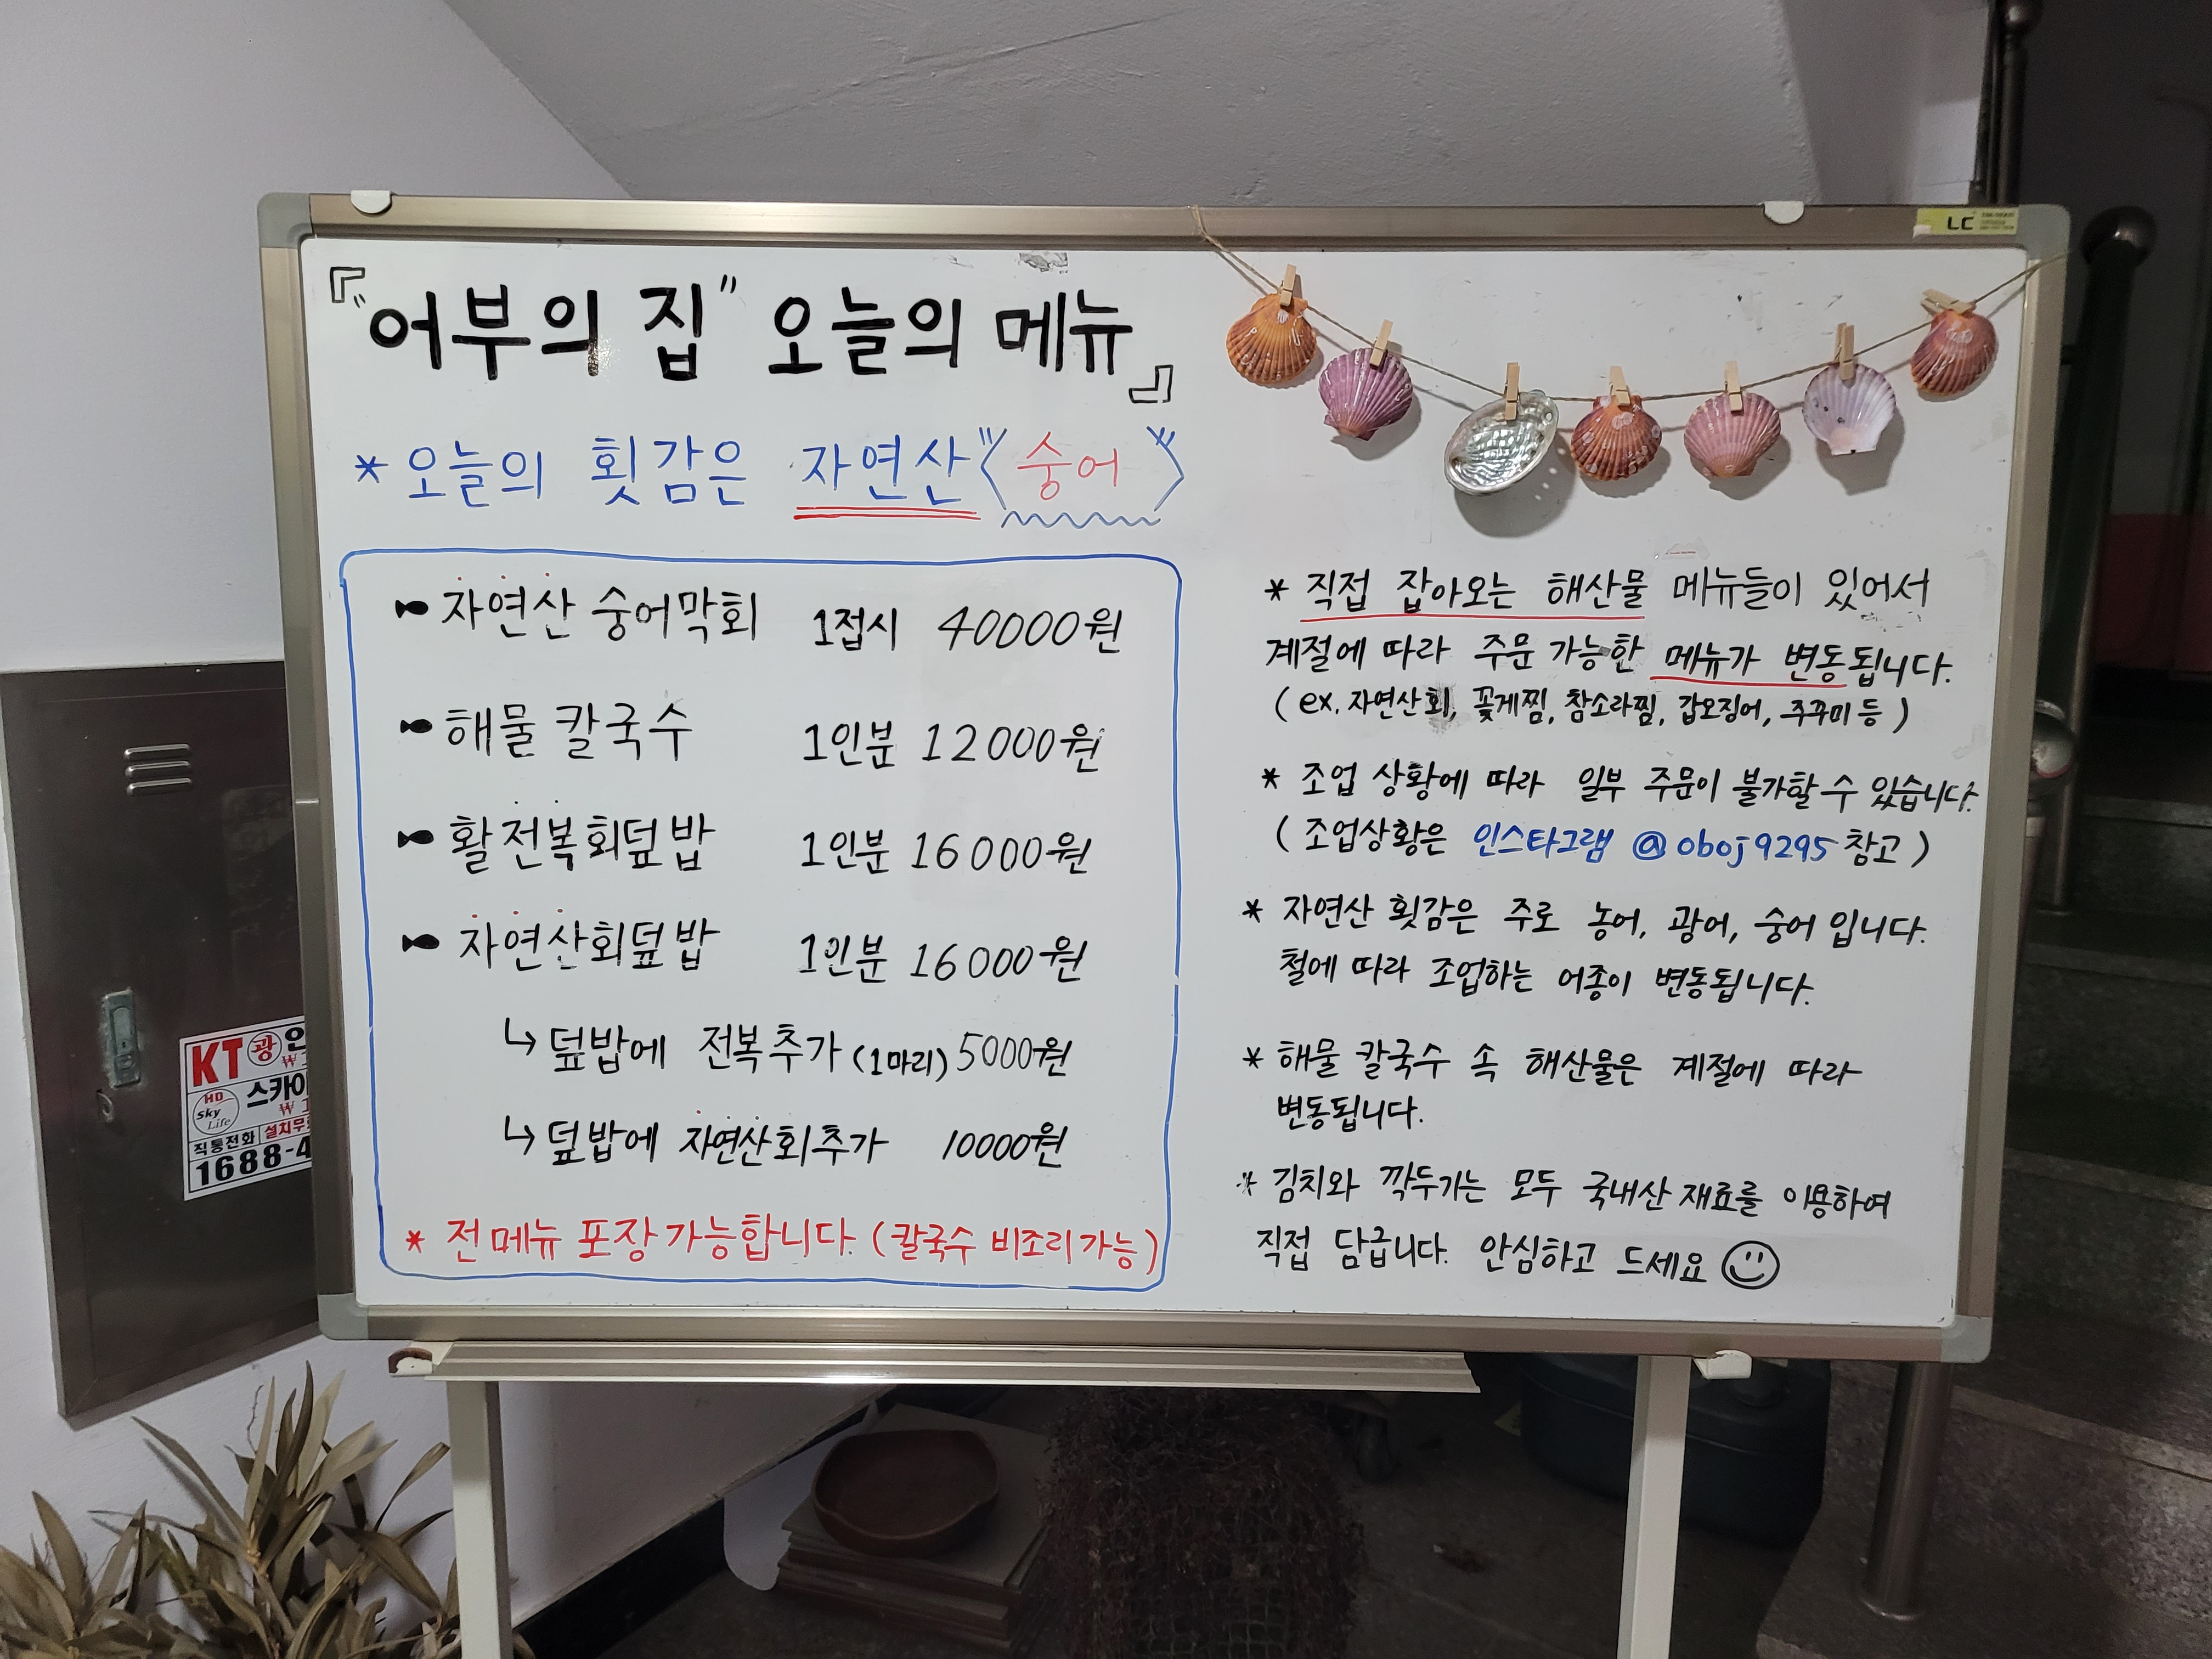 『"어부의 집" 오늘의 메뉴』
* 오늘의 횟감은 자연산 〈숭어〉
자연산 숭어막회 1접시 40000원
해물 칼국수 1인분 12000원
활전복회덮밥 1인분 16000원
자연산회덮밥 1인분 16000원
↳ 덮밥에 전복추가 (1마리) 5000원
↳ 덮밥에 자연산회추가 10000원
* 전메뉴 포장 가능합니다. (칼국수 비조리가능)
* 직접 잡아오는 해산물 메뉴들이 있어서
계절에 따라 주문 가능한 메뉴가 변동됩니다.
( ex. 자연산회, 꽃게찜, 참소라찜, 갑오징어, 주꾸미 등 )
* 조업 상황에 따라 일부 주문이 불가할 수 있습니다.
( 조업상황은 인스타그램 @oboj9295 참고 )
* 자연산 횟감은 주로 농어, 광어, 숭어 입니다.
철에 따라 조업하는 어종이 변동됩니다.
* 해물 칼국수 속 해산물은 계절에 따라
변동됩니다.
* 김치와 깍두기는 모두 국내산 재료를 이용하여
직접 담급니다. 안심하고 드세요
LC
KT 광
HD
sky Life 스카이
직통전화 설치무
1688-4